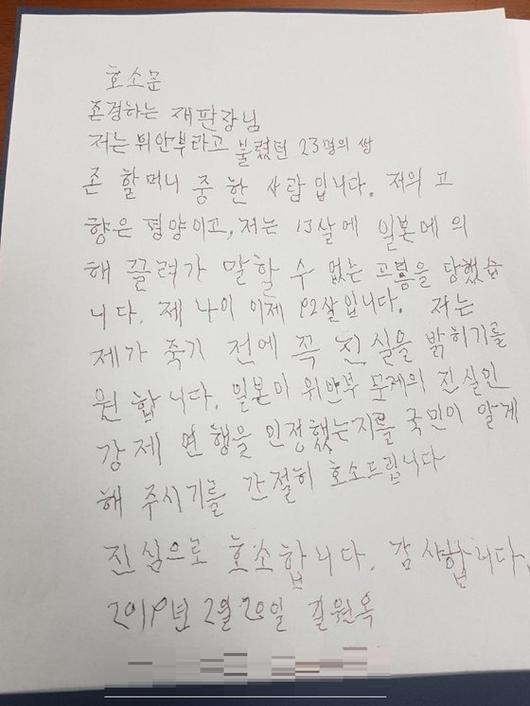 호소문
존경하는 재판장님
저는 위안부라고 불렸던 23명의 쌩
존 할머니 중 한 사람입니다. 저의 고
향은 평양이고, 저는 13살에 일본에 의
해 끌려가 말할 수 없는 고통을 당했습
니다. 제 나이 이제 92살입니다. 저는
제가 죽기 전에 꼭 진실을 밝히기를
원합니다. 일본이 위안부 문제의 진실인
강제 연행을 인정했는지를 국민이 알게
해 주시기를 간절히 호소드립니다
진심으로 호소합니다. 감사합니다.
2019년 2월 20일 길원옥